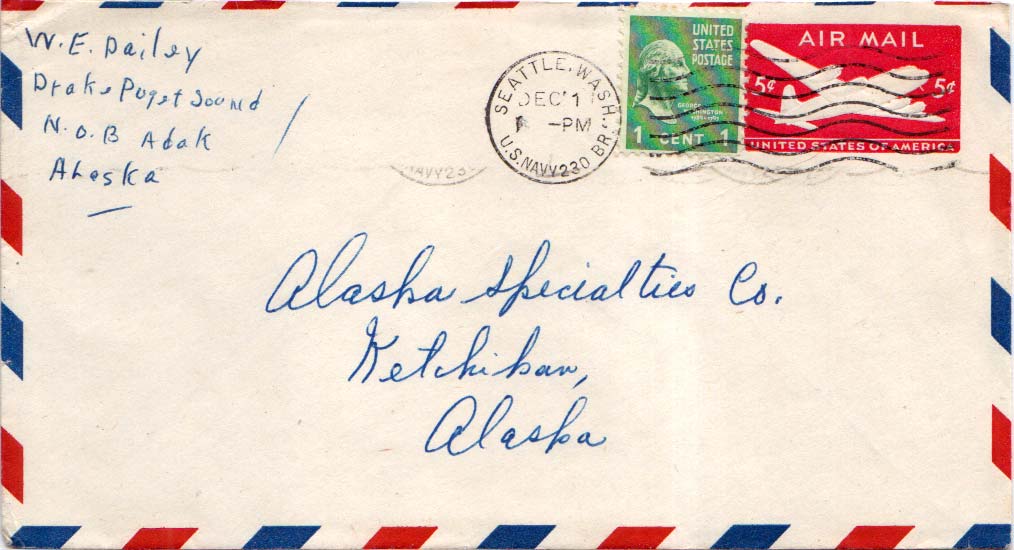 W. E. Dailey
Drake Puget Sound
N.O.B Adak
Alaska
SEATTLE, WASH.
DEC 1
-PM
U.S. NAVY 230 BR.
NAVY 230
UNITED
STATES
POSTAGE
GEORGE
WASHINGTON
1 CENT 1
AIR MAIL
5¢ 5¢
UNITED STATES OF AMERICA
Alaska Specialties Co.
Ketchikan,
Alaska